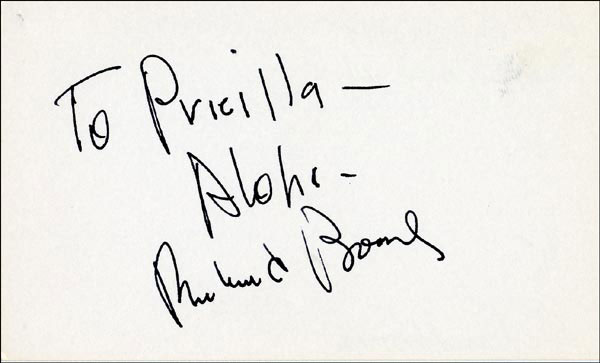 To Pricilla —
Aloha -
Richard Boone